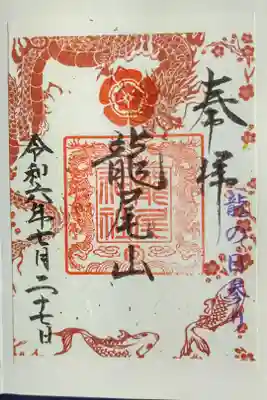 奉拝
龍の日参り
龍尾山
令和六年七月二十七日